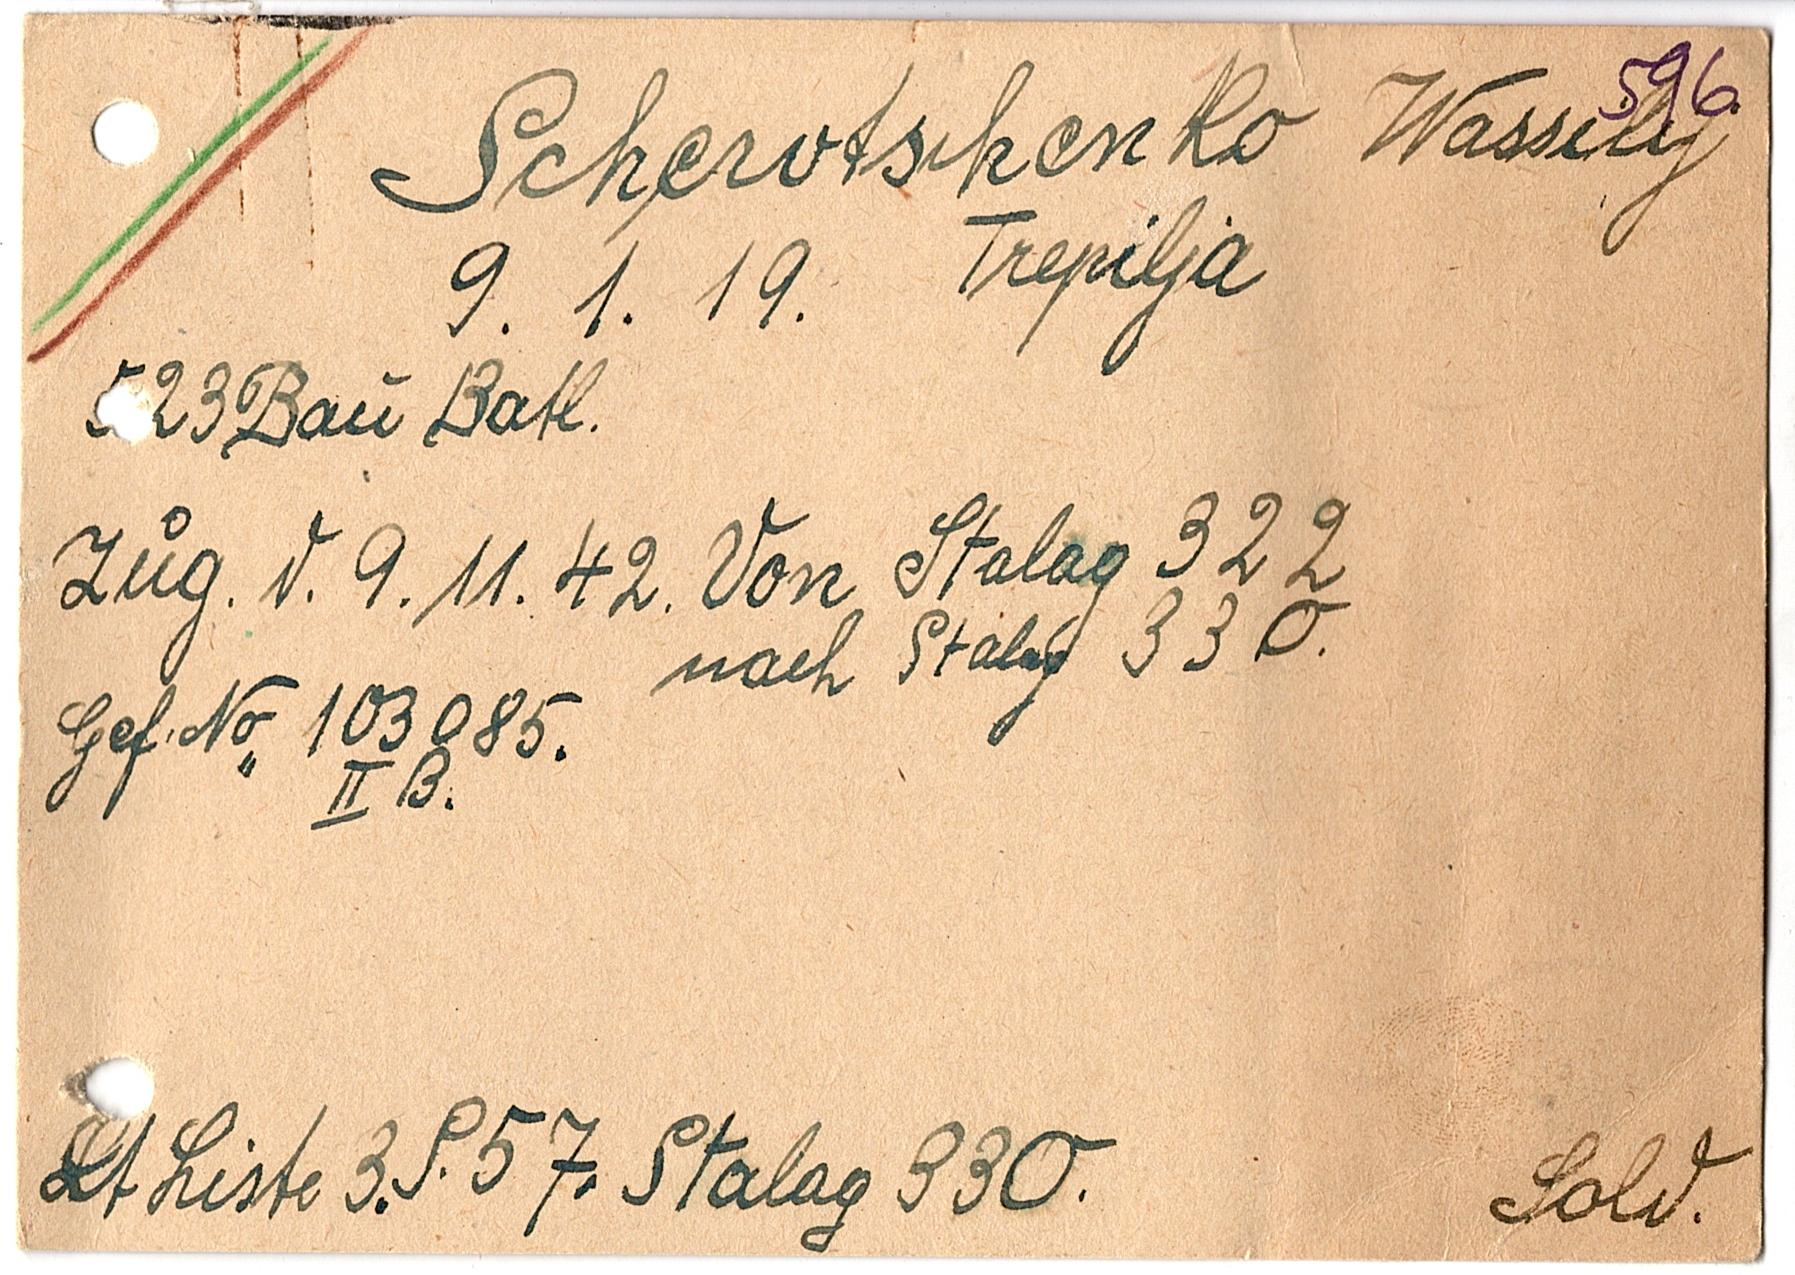 596
Scherotschenko Wassilij
9. 1. 19. Trepilja
523 Bau Batl.
Zug. v. 9. 11. 42. Von Stalag 322
nach Stalag 330.
Gef. No. 103085.
II B.
Lt Liste 3. S. 57. Stalag 330.
Sold.